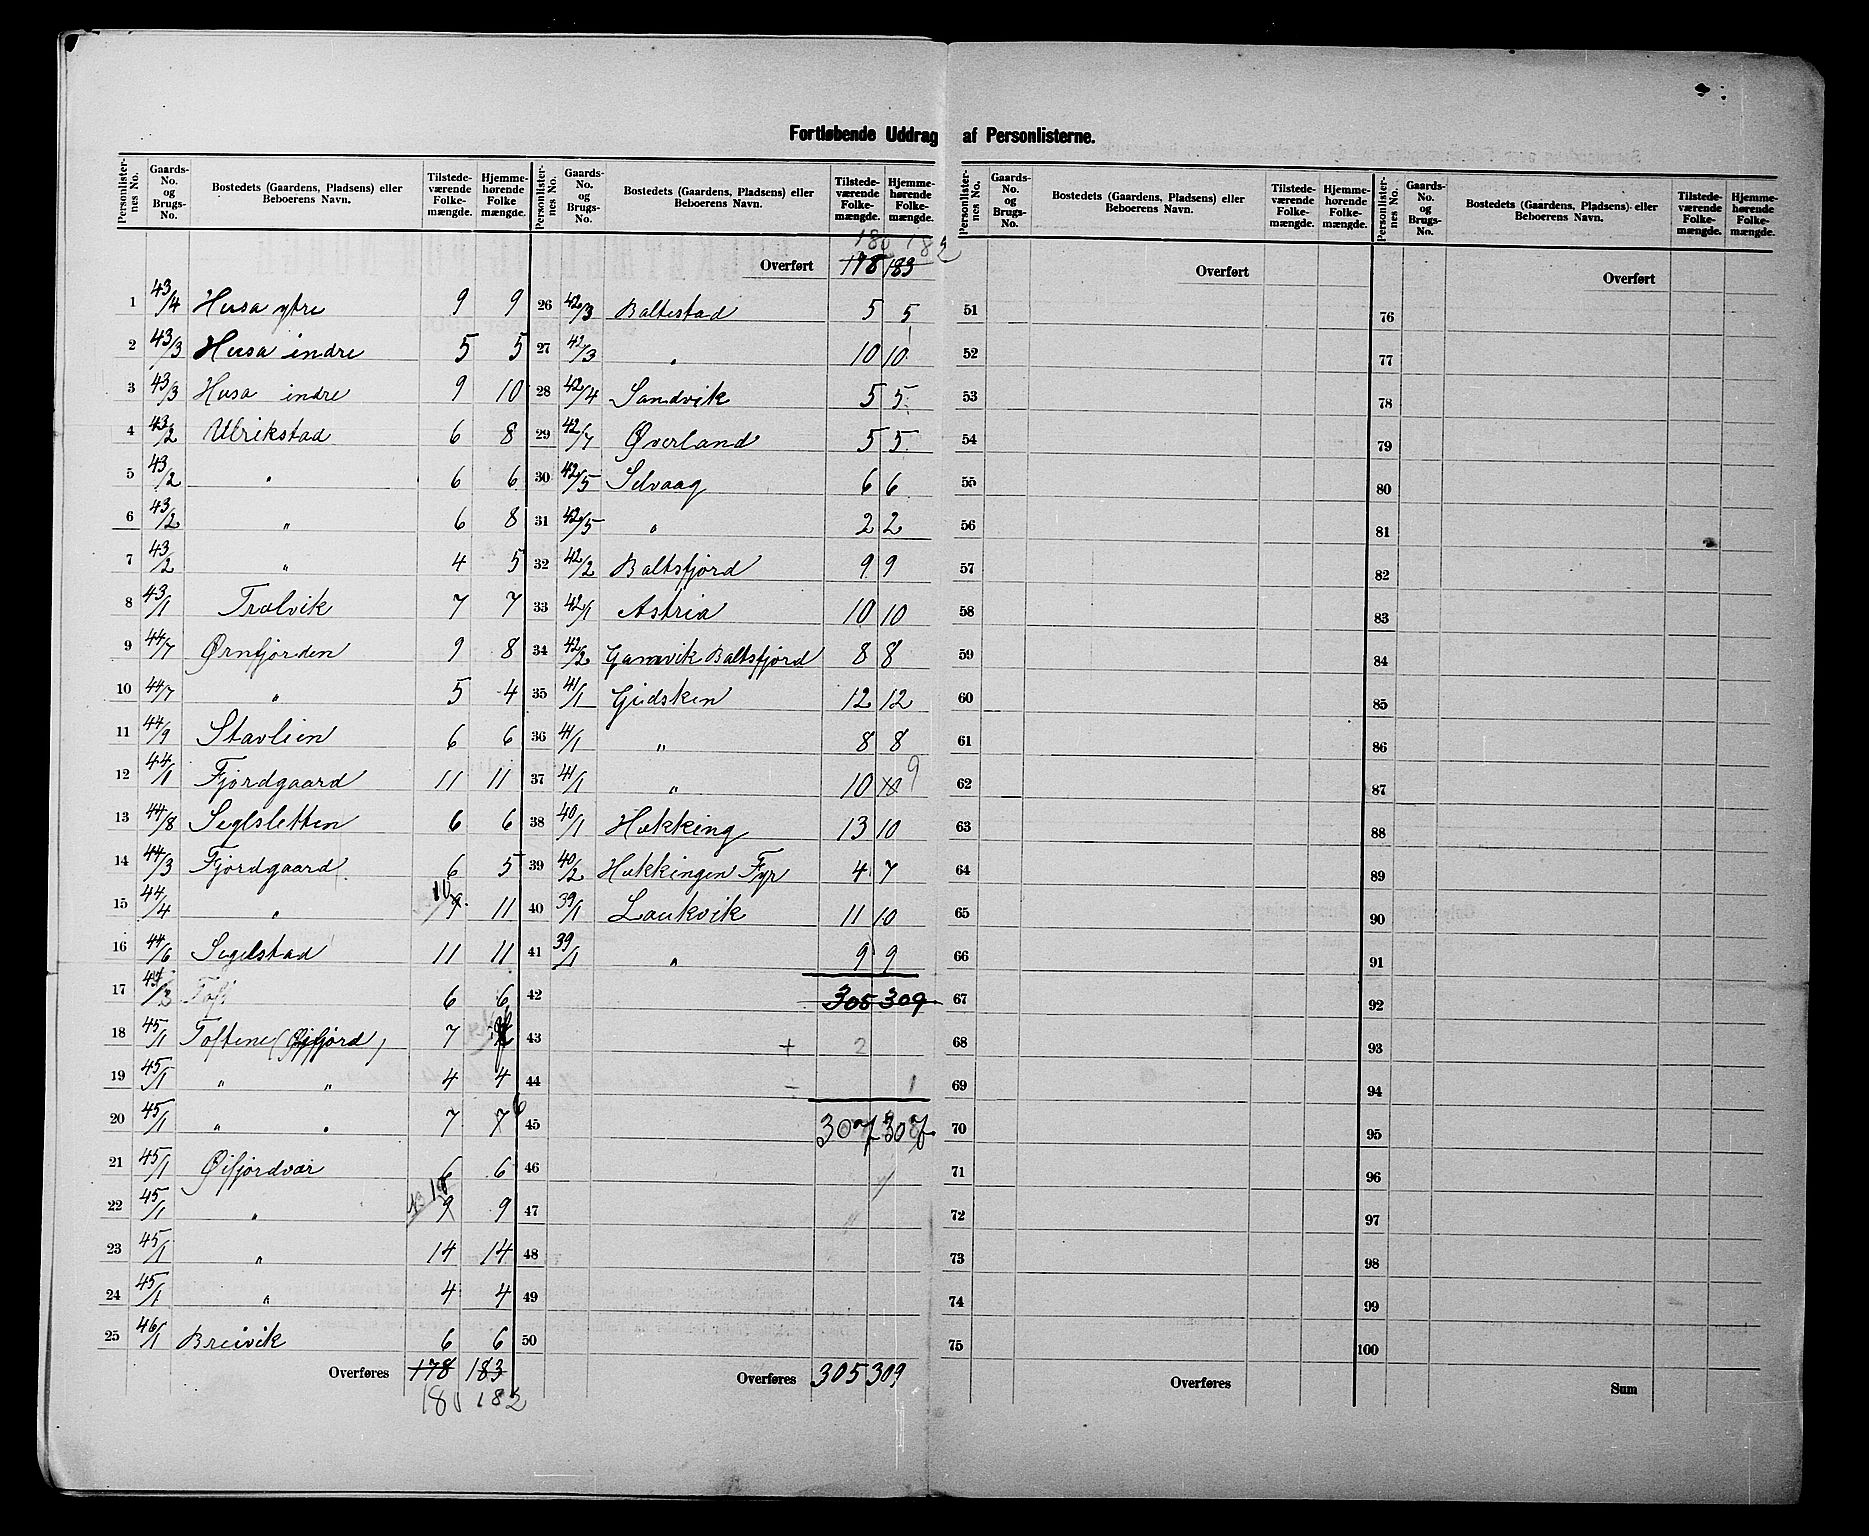 Fortløbende Uddrag af Personlisterne.
Personlister-nes No. Gaards-No. og Brugs-No. Bostedets (Gaardens, Pladsens) eller Beboerens Navn. Tilstede-værende Folke-mængde. Hjemme-hørende Folke mængde.
1 43/4 Husa ytre 9 9
2 43/3 Husa indre 5 5
3 43/3 Husa indre 9 10
4 43/2 Ulrikstad 6 8
5 43/2 " 6 6
6 43/2 " 6 8
7 43/2 " 4 5
8 43/1 Trælvik 7 7
9 44/7 Ørnfjorden 9 8
10 44/7 " 5 4
11 44/9 Stavlien 6 6
12 44/1 Fjordgaard 11 11
13 44/8 Seglsletten 6 6
14 44/3 Fjordgaard 6 5
15 44/4 " 10 9 11
16 44/6 Segelstad 11 11
17 6 6
18 45/1 Toftene (Øifjord) 7
19 45/1 " " 4 4
20 45/1 " " 7 7 6
21 45/1 Øifjordvær 6 6
22 45/1 " 10 9 9
23 45/1 " 14 14
24 45/1 " 4 4
25 46/1 Breivik 6 6
Overføres 178 183
180 182
Personlister-nes No. Gaards-No. og Brugs-No. Bostedets (Gaardens, Pladsens) eller Beboerens Navn. Tilstede-værende Folke-mængde. Hjemme-hørende Folke-mængde.
180 182
Overført 178 183
26 42/3 Baltestad 5 5
27 42/3 " 10 10
28 42/4 Sandvik 5 5
29 42/7 Øverland 5 5
30 42/5 Selvaag 6 6
31 42/5 " 2 2
32 42/2 Baltsfjord 9 9
33 42/1 Astria 10 10
34 42/2 Gamvik Baltsfjord 8 8
35 41/1 Gidsken 12 12
36 41/1 " 8 8
37 41/1 " 10 10 9
38 40/1 Hekking 13 10
39 40/2 Hekkingen Fyr 4 7
40 39/1 Laukvik 11 10
41 39/1 " 9 9
42 305 309
43 + 2
44 - 1
45 307 307
46
47
48
49
50
Overføres 305 309
Personlister-nes No. Gaards-No. og Brugs-No. Bostedets (Gaardens, Pladsens) eller Beboerens Navn. Tilstede-værende Folke-mængde. Hjemme-hørende Folke-mængde.
Overført
51
52
53
54
55
56
57
58
59
60
61
62
63
64
65
66
67
68
69
70
71
72
73
74
75
Overføres
Personlister-nes No. Gaards-No. og Brugs-No. Bostedets (Gaardens, Pladsens) eller Beboerens Navn. Tilstede-værende Folke-mængde. Hjemme-hørende Folke-mængde.
Overført
76
77
78
79
80
81
82
83
84
85
86
87
88
89
90
91
92
93
94
95
96
97
98
99
100
Sum